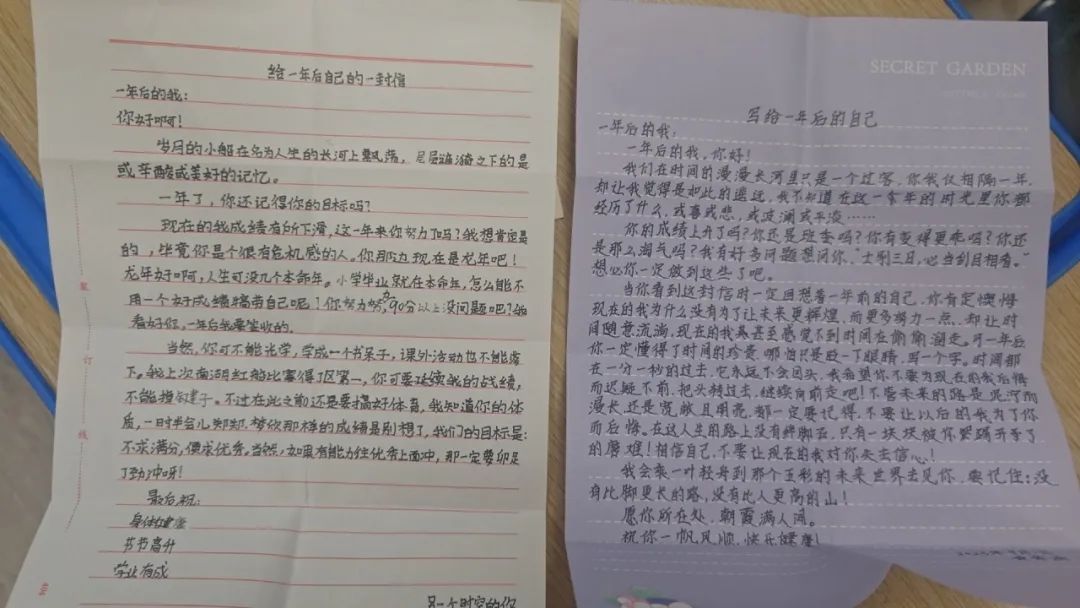 给一年后自己的一封信
一年后的我：
你好啊！
岁月的小船在名为人生的长河上飘荡，层层涟漪之下的是
或辛酸或美好的记忆。
一年了，你还记得你的目标吗？
现在的我成绩有所下滑，这一年来你努力了吗？我想肯定是
的，毕竟你是个很有危机感的人。你那边现在是龙年吧！
龙年好啊，人生可没几个本命年。小学毕业就在本命年，怎么能不
用一个好成绩犒劳自己呢？你努努力，90分以上没问题吧？我
看好你，一年后我要签收的。
当然，你可不能光学，学成一个书呆子，课外活动也不能落
下。我上次南湖红船比赛得了区第一，你可要延续我的战绩，
不能摆子。不过在此之前还是要搞好体育，我知道你的体
质，一时半会儿和那样的成绩是别想了，我们的目标是：
不求满分，但求优秀。当然，如果有能力往优秀上面冲，那一定要卯足
了劲冲呀！
最后祝：
身体健康
节节高升
学业有成
另一个时空的你
装
订
线
SECRET GARDEN
写给一年后的自己
一年后的我：
一年后的我，你好！
我们在时间的漫漫长河里只是一个过客，你我仅相隔一年，
却让我觉得是如此的遥远。我不知道在这一个年的时光里你都
经历了什么，或喜或悲，或波澜或平淡……
你的成绩上升了吗？你还是班委吗？你有变得更乖吗？你还
是那么淘气吗？我有好多问题想问你。“士别三日，必当刮目相看。”
想必你一定做到这些了吧。
当你看到这封信时一定回想着一年前的自己，你肯定懊悔
现在的我为什么没有为了让未来更辉煌，而更多努力一点，却让时
间随意流淌。现在的我甚至感觉不到时间在偷偷溜走。可一年后
你一定懂得了时间的珍贵，哪怕只是眨一下眼睛，写一个字。时间都
在一分一秒的过去，它永远不会回头，我希望你不要为现在的我后悔
而迟疑不前，把头转过去，继续向前走吧！不管未来的路是泥泞而
漫长，还是宽敞且明亮，都一定要记得，不要让以后的我为了你
而后悔。在这人生的路上没有绊脚石，只有一块块被你紧踢开来了
的磨难！相信自己，不要让现在的我对你失去信心！
我会乘一叶轻舟到那个五彩的未来世界去见你，要记住：没
有比脚更长的路，没有比人更高的山！
愿你所在处，朝霞满人间。
祝你一帆风顺，快乐健康！